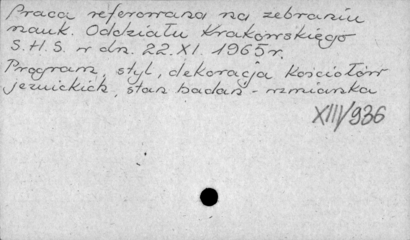 Praca referowana na zebraniu
nauk. Oddziału Krakowskiego
S.H.S. w dn. 22.XI. 1965r.
Program, styl, dekoracja kościołów
jezuickich, stan badań - wzmianka
XIII/936